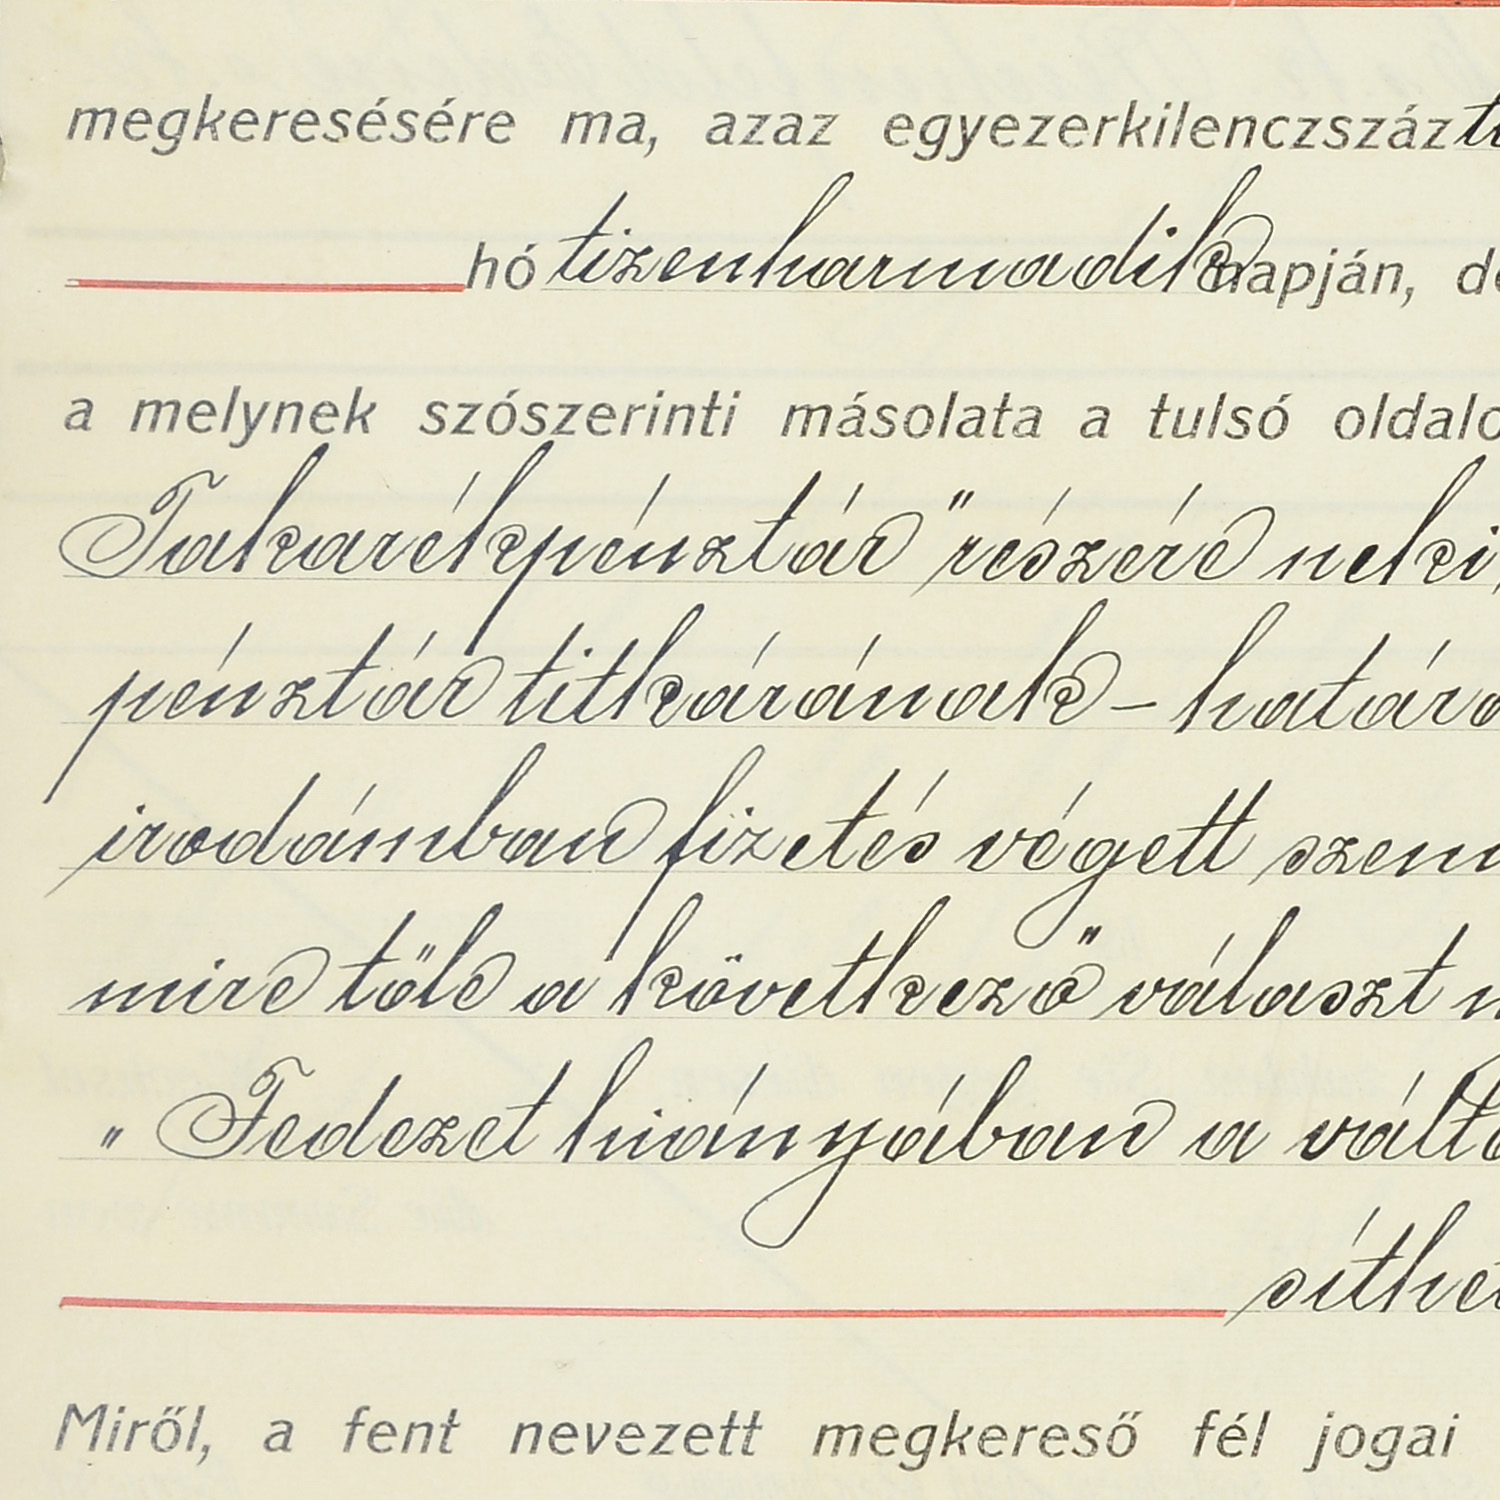 megkeresésére ma, azaz egyezerkilenczszáz
hó tizenharmadik napján,
a melynek szószerinti másolata a tulsó
Takarékpénztár" részére neki,
pénztár titkárának –
irodámban fizetés végett
mire tőle a következő választ
"Fedezet hiányában a
Miről, a fent nevezett megkereső fél jogai